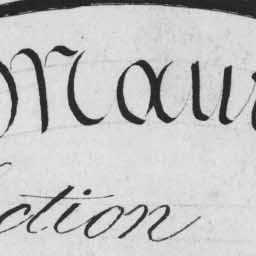 Maur
ction